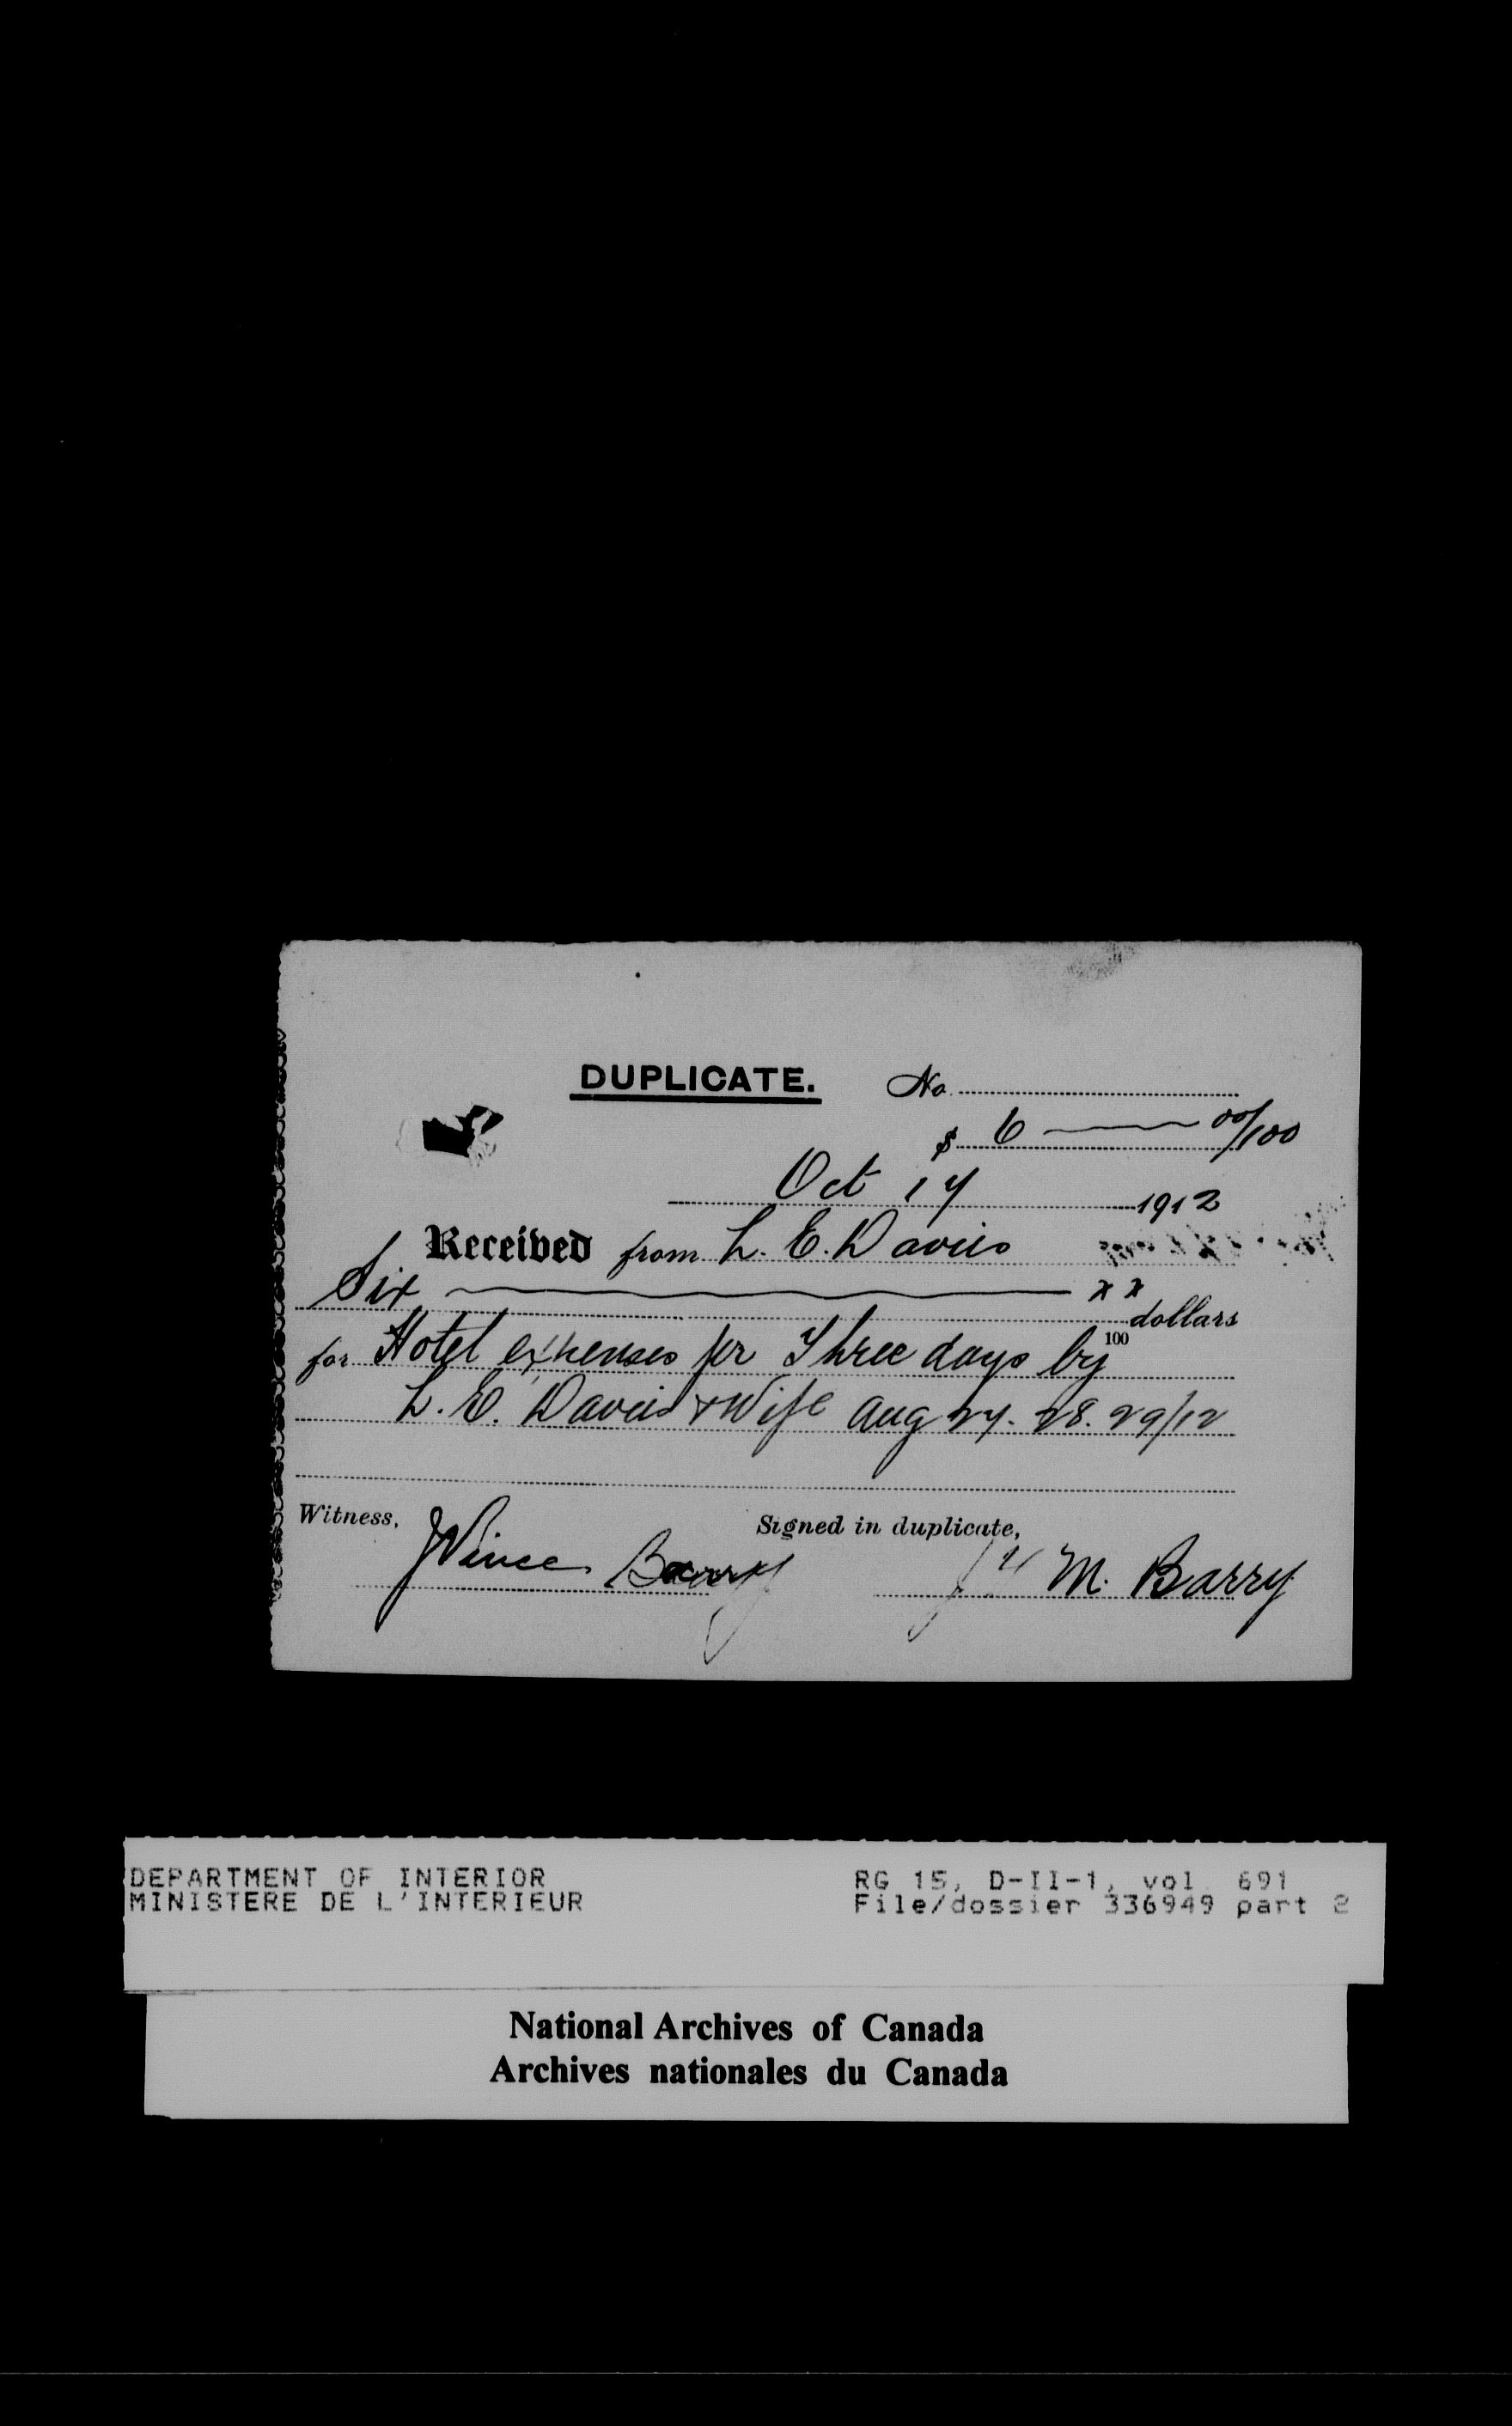 DUPLICATE. No
$ 6 —— 00/100
Oct 17 1912
Received from L. E. Davies
Six —— x x dollars
100
for Hotel expenses for Three days by
L. E. Davies & Wife Aug 27. 28. 29/12
Witness, Signed in duplicate,
Vince Barry M. Barry
DEPARTMENT OF INTERIOR RG 15, D-II-1, vol 691
MINISTERE DE L'INTERIEUR File/dossier 336949 part 2
National Archives of Canada
Archives nationales du Canada